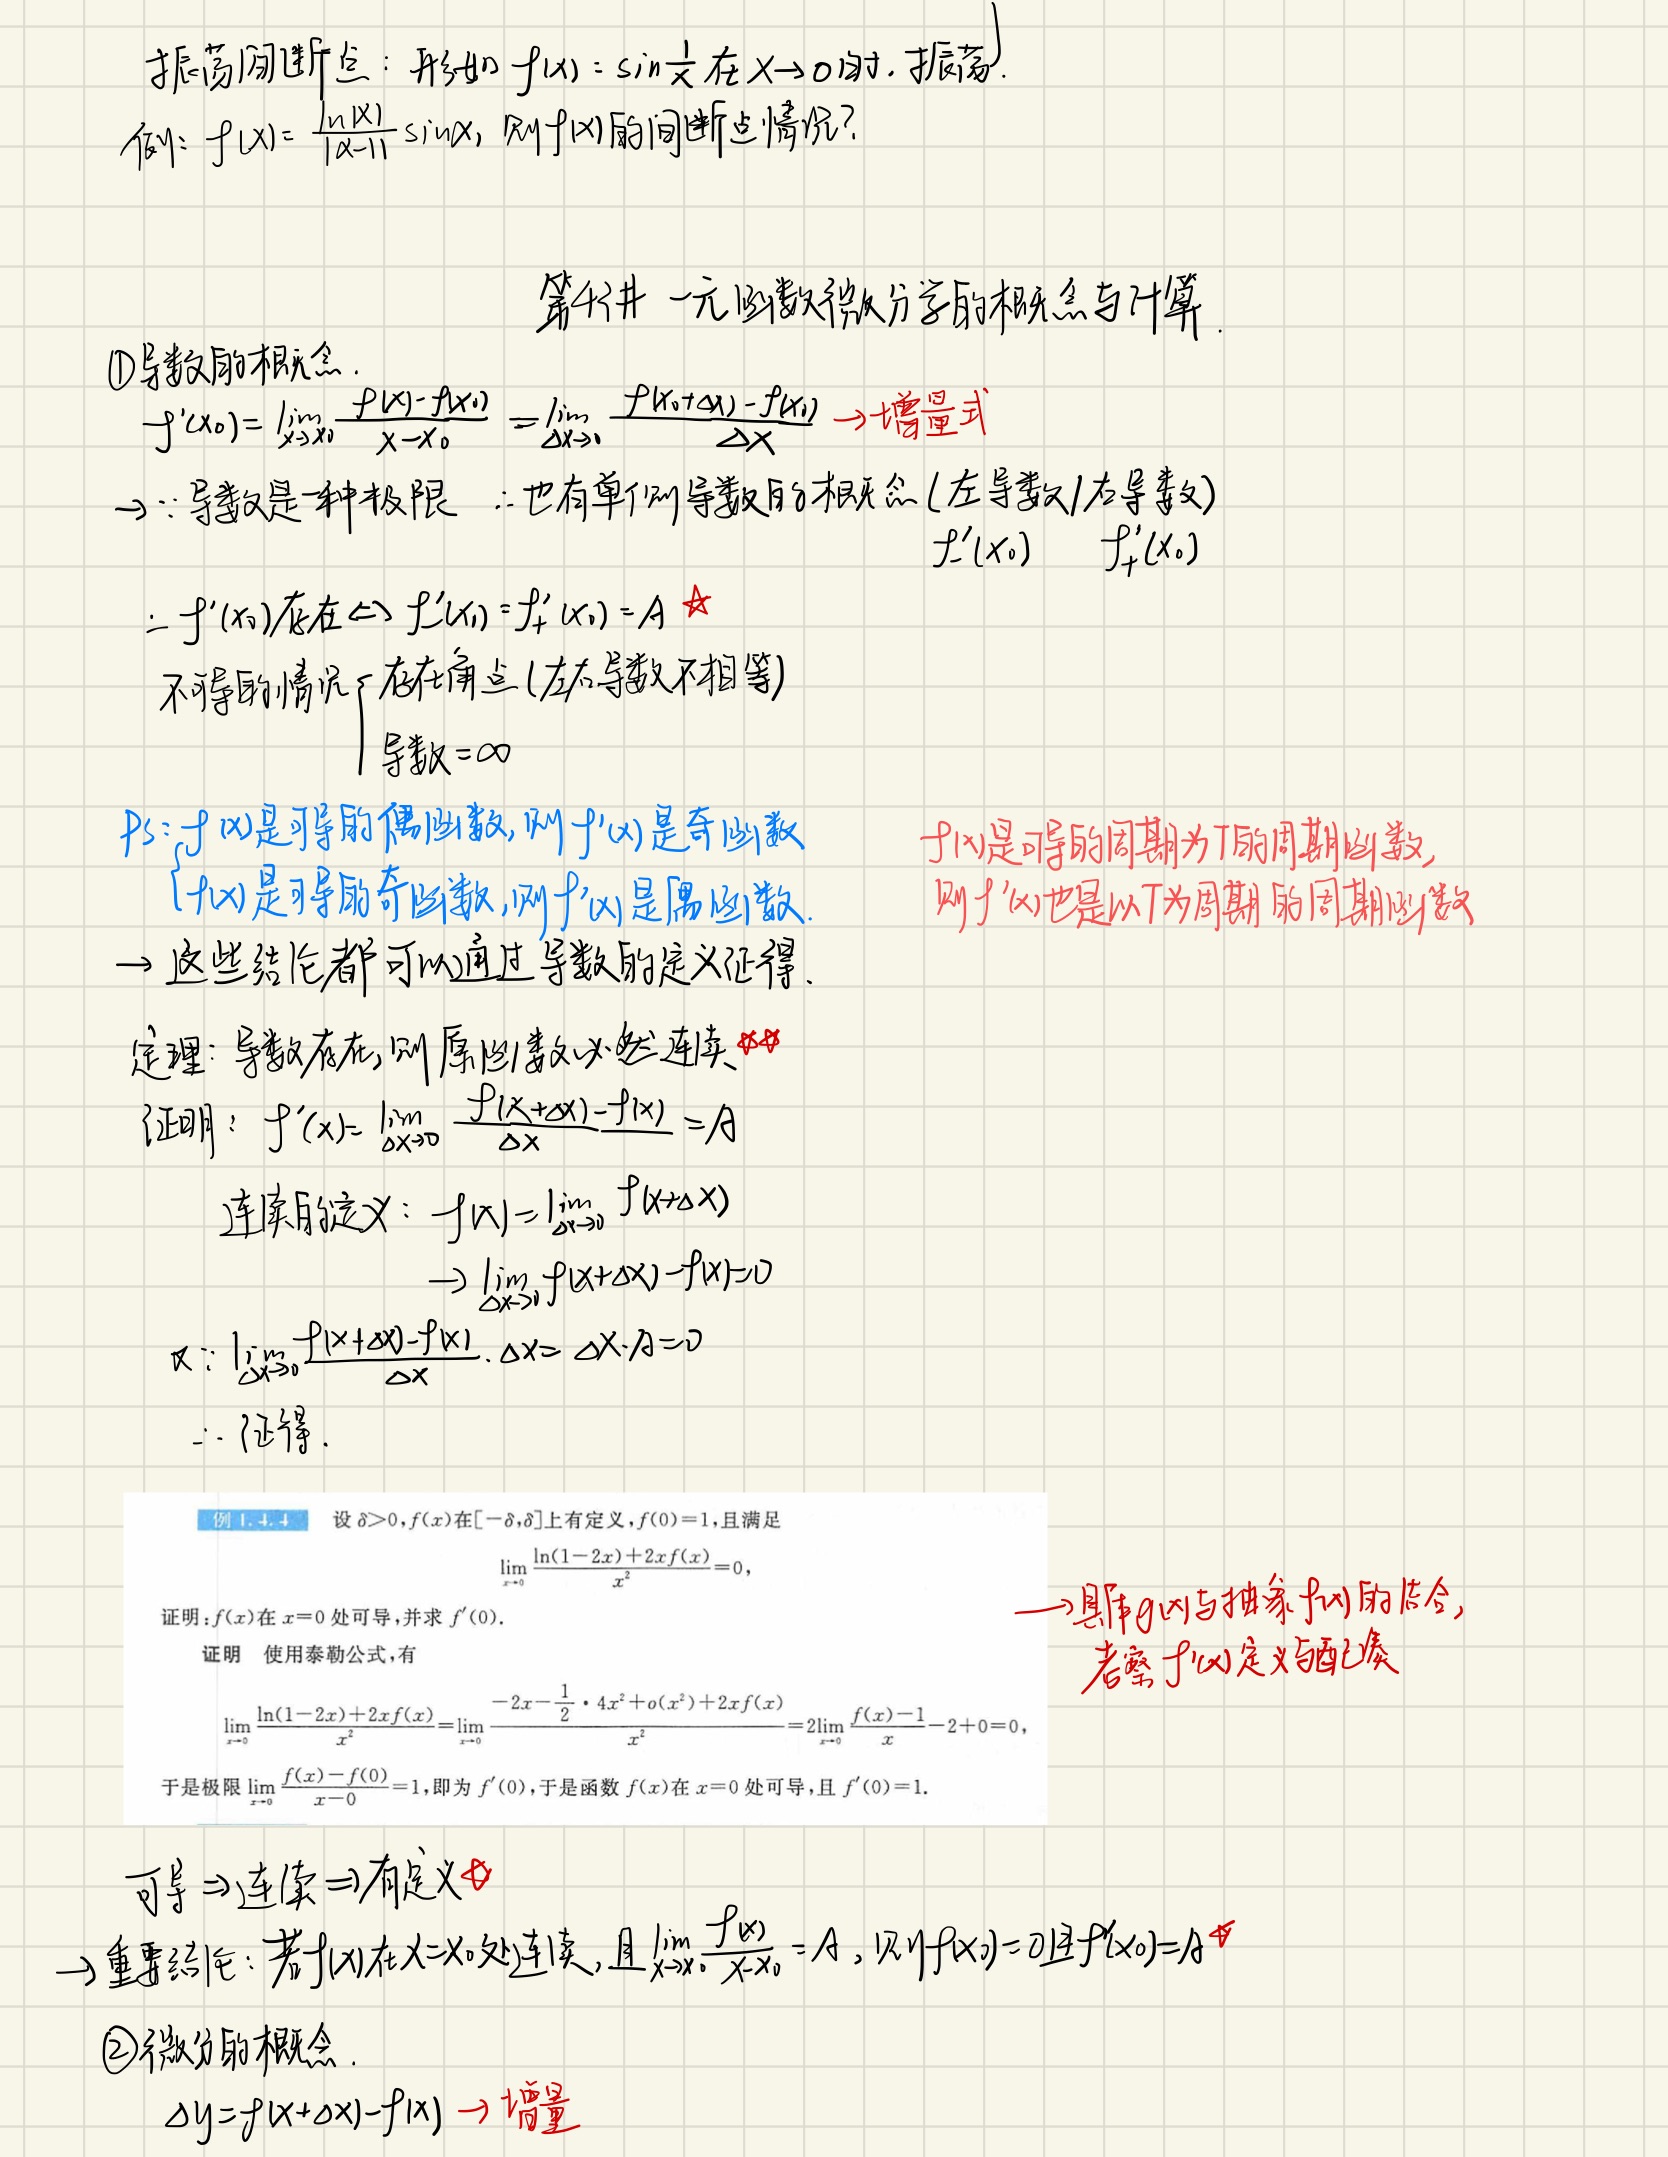 振荡间断点：形如 f(x)=sin 1/x 在 x→0时，振荡.
例：f(x)= ln|x| / |x-1| sinx，则f(x)的间断点情况？
第4讲 一元函数微分学的概念与计算.
①导数的概念.
f'(x₀)=lim x→x₀ (f(x)-f(x₀))/(x-x₀) =lim Δx→0 (f(x₀+Δx)-f(x₀))/Δx →增量式
→∵导数是一种极限 ∴也有单侧导数的概念(左导数/右导数)
f₋'(x₀) f₊'(x₀)
∴ f'(x₀)存在⇔ f₋'(x₀)=f₊'(x₀)=A ☆
不可导的情况{ 存在角点(左右导数不相等)
导数=∞
PS：{ f(x)是可导的偶函数,则f'(x)是奇函数
f(x)是可导的奇函数,则f'(x)是偶函数.
f(x)是可导的周期为T的周期函数,
则f'(x)也是以T为周期的周期函数
→ 这些结论都可以通过导数的定义证得.
定理：导数存在,则原函数必然连续 ☆☆
证明：f'(x)=lim Δx→0 (f(x+Δx)-f(x))/Δx =A
连续的定义：f(x)=lim Δx→0 f(x+Δx)
→ lim Δx→0 f(x+Δx)-f(x)=0
又∵ lim Δx→0 (f(x+Δx)-f(x))/Δx · Δx= Δx·A=0
∴ 证得.
例 1.4.4 设 δ>0,f(x)在[-δ,δ]上有定义,f(0)=1,且满足
lim x→0 (ln(1-2x)+2xf(x))/x² =0,
证明:f(x)在 x=0 处可导,并求 f'(0).
证明 使用泰勒公式,有
lim x→0 (ln(1-2x)+2xf(x))/x² =lim x→0 (-2x- 1/2 · 4x²+o(x²)+2xf(x))/x² =2lim x→0 (f(x)-1)/x -2+0=0,
于是极限 lim x→0 (f(x)-f(0))/(x-0) =1,即为 f'(0),于是函数 f(x)在 x=0 处可导,且 f'(0)=1.
→具体g(x)与抽象f(x)的结合,
考察 f'(x)定义与配凑
可导⇒连续⇒有定义☆
→重要结论：若f(x)在x=x₀处连续,且lim x→x₀ f(x)/(x-x₀) =A，则f(x₀)=0且f'(x₀)=A☆
②微分的概念.
Δy=f(x+Δx)-f(x) →增量